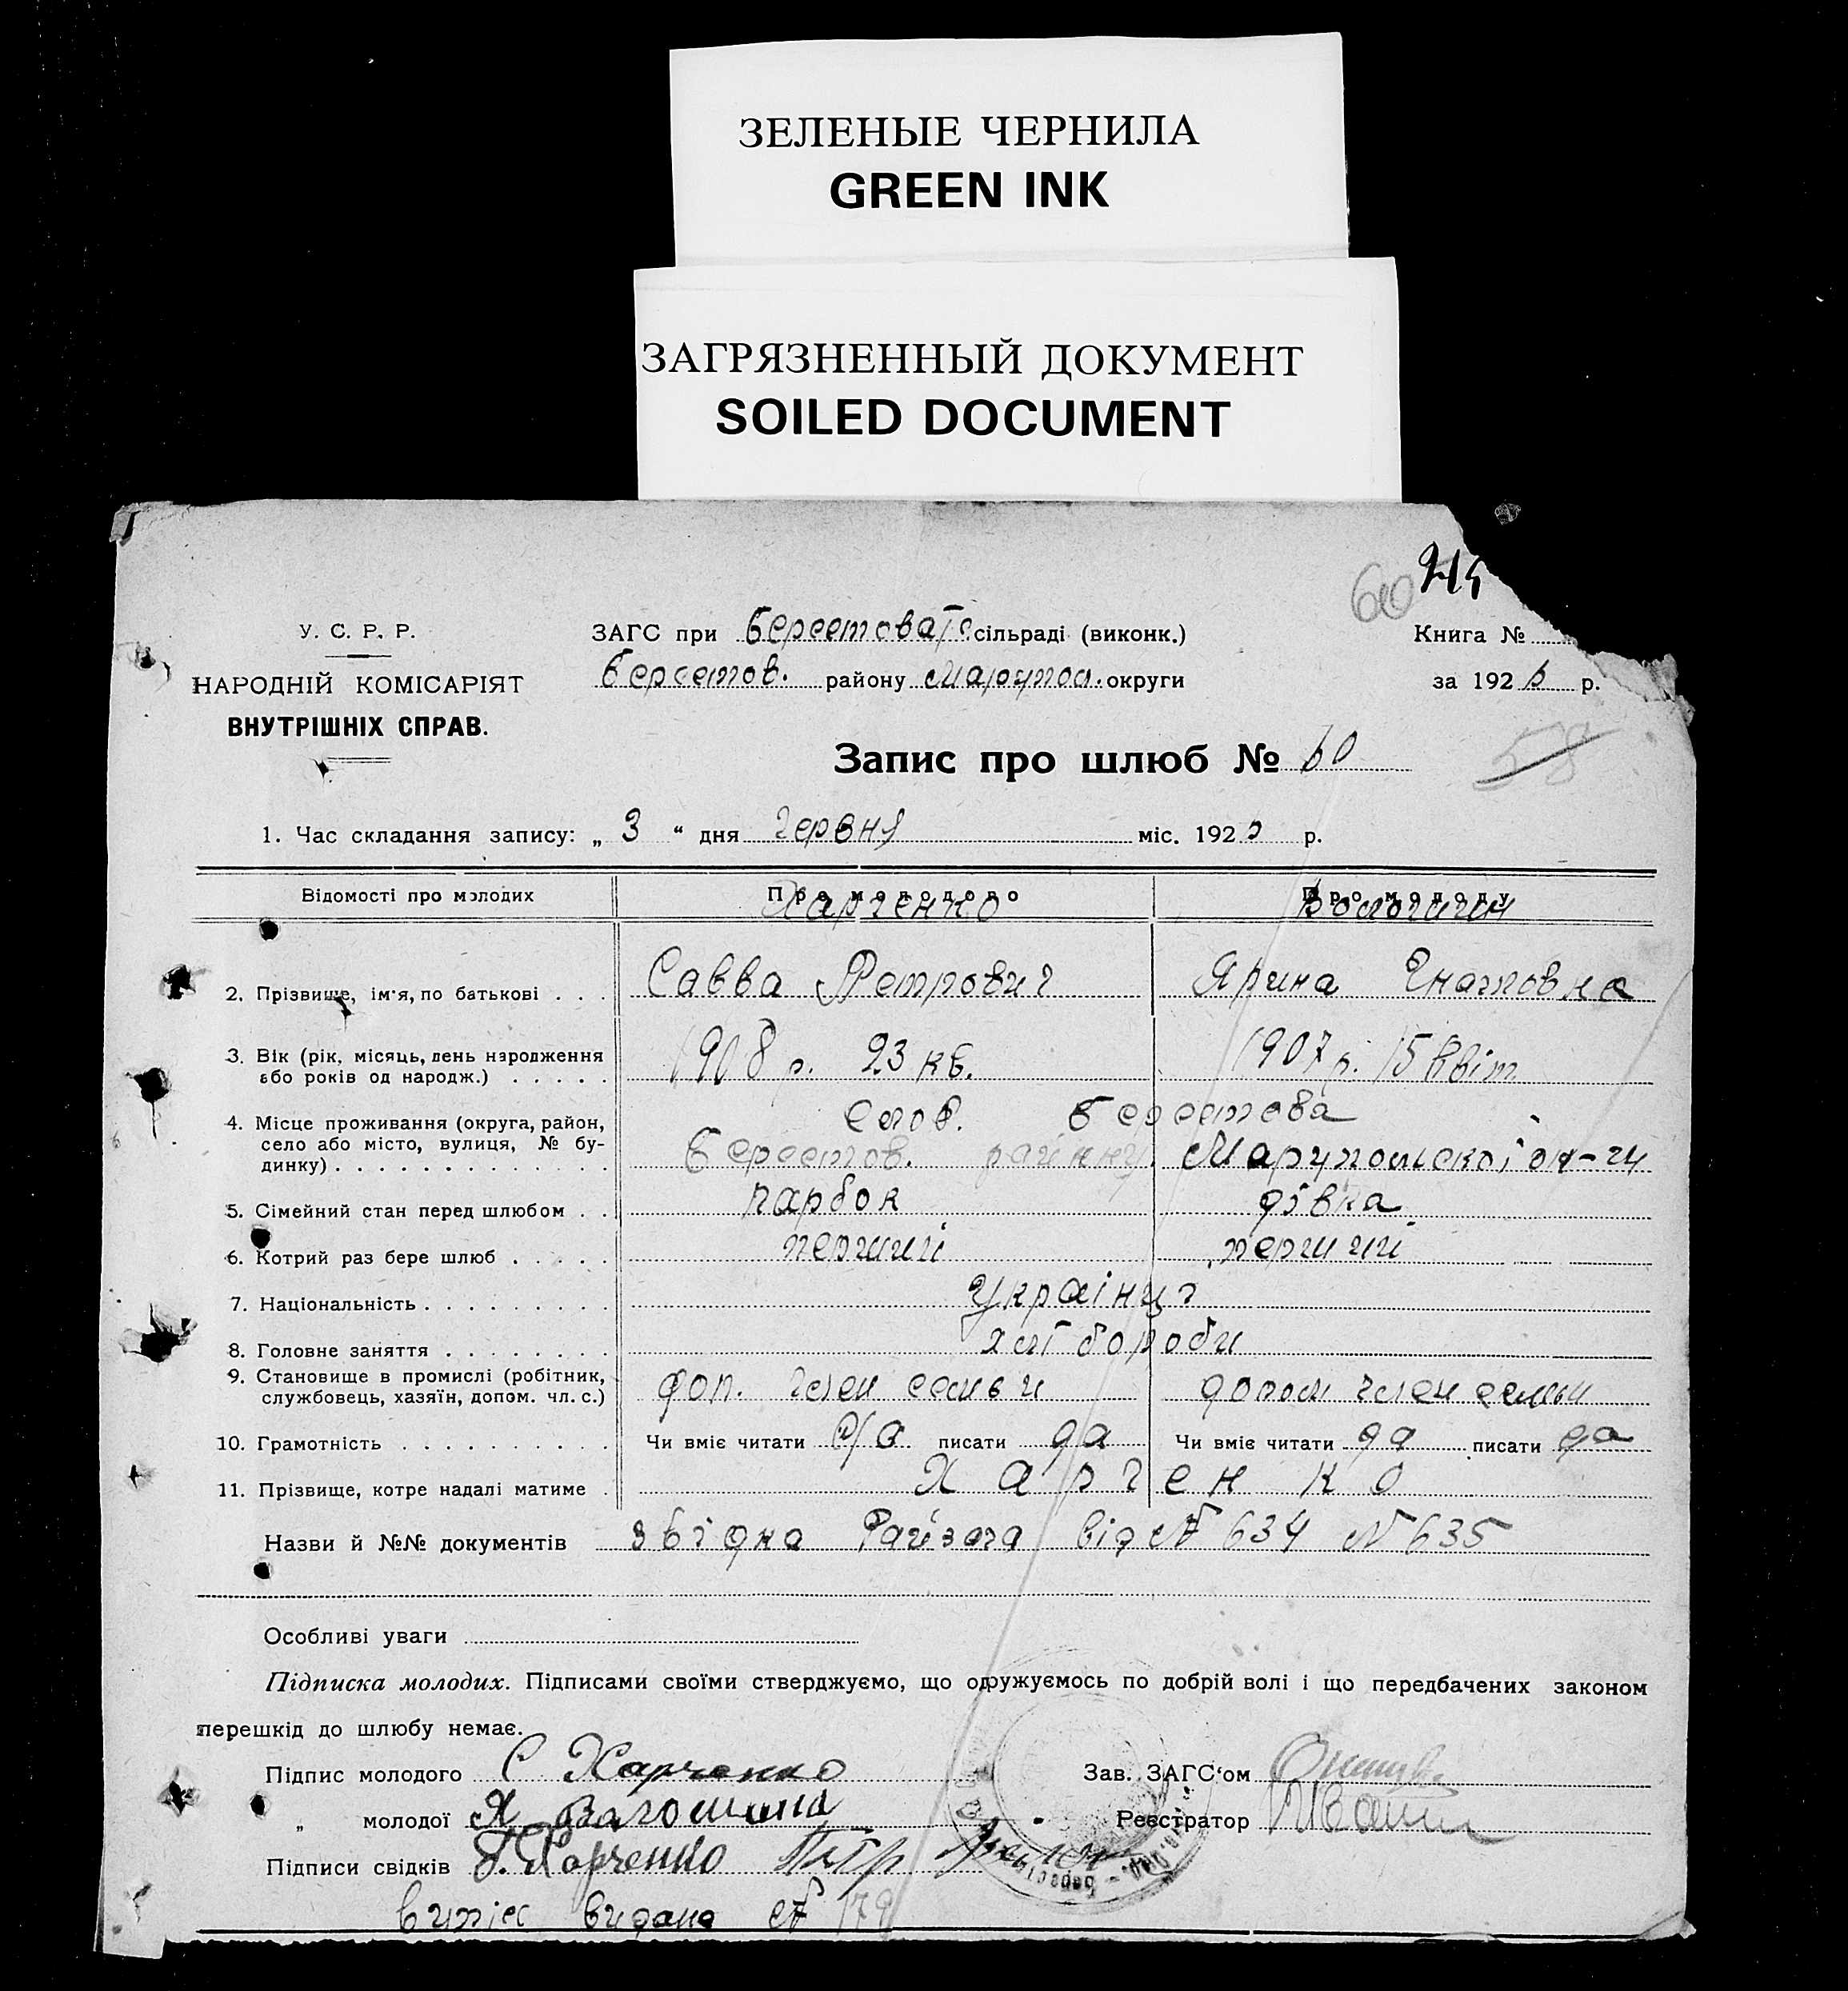 ЗЕЛЕНЫЕ ЧЕРНИЛА
GREEN INK
ЗАГРЯЗНЕННЫЙ ДОКУМЕНТ
SOILED DOCUMENT
60
У. С. Р. Р.
НАРОДНІЙ КОМІСАРІЯТ
ВНУТРІШНІХ СПРАВ.
ЗАГС при сільраді (виконк.)
Берестов. району Марупол. округи
Книга №
за 192 р.
58
Запис про шлюб № 60
1. Час складання запису: „ 3 “ дня червня міс. 192 р.
Відомості про молодих Про молодого Про молоду
Харченко
2. Прізвище, ім'я, по батькові . . . Савва Петрович Ярина Гнатовна
3. Вік (рік, місяць, день народження 1908 р. 23 кв. 1907 р. 15 квіт
або років од народж.) . . . . .
4. Місце проживання (округа, район, слов. Берестова
село або місто, вулиця, № бу-
динку) . . . . . . . . . . . . . Берестов. району Марупольскої ок-ги
5. Сімейний стан перед шлюбом . . парбок дівка
6. Котрий раз бере шлюб . . . . . перший перший
7. Національність . . . . . . . . . Українці
8. Головне заняття . . . . . . . . хліб
9. Становище в промислі (робітник,
службовець, хазяїн, допом. чл. с.) доп. член семьи допом член семьи
10. Грамотність . . . . . . . . . . Чи вміє читати да писати да Чи вміє читати да писати да
11. Прізвище, котре надалі матиме . Харченко
Назви й №№ документів від № 634 № 635
Особливі уваги
Підписка молодих. Підписами своїми стверджуємо, що одружуємось по добрій волі і що передбачених законом
перешкід до шлюбу немає.
Підпис молодого С Харченко Зав. ЗАГС'ом
„ молодої Я Валошина Реєстратор
Підписи свідків Харченко
випис видано № 179